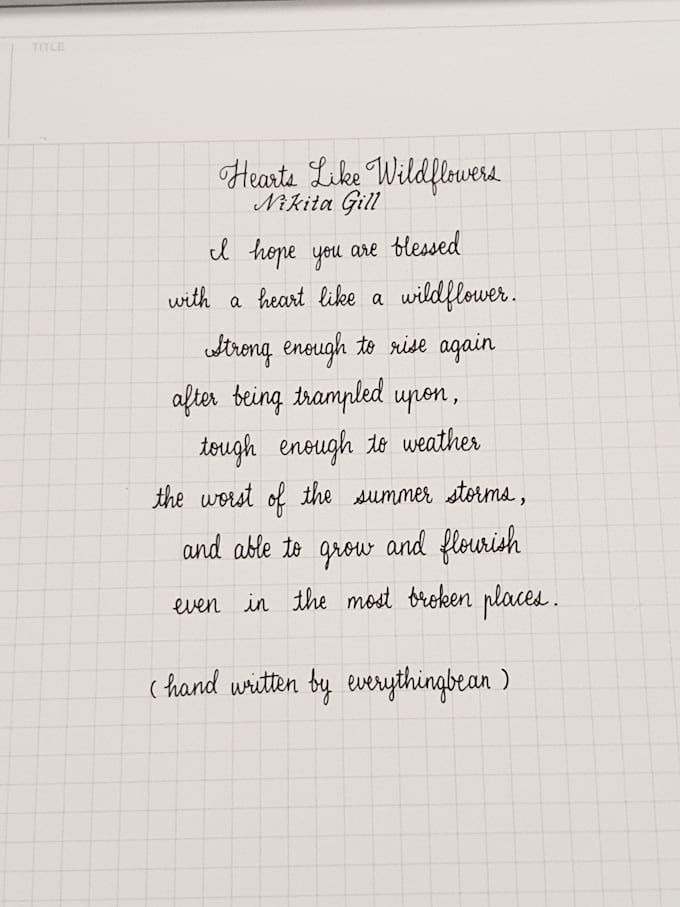 TITLE
Hearts Like Wildflowers
Nikita Gill
I hope you are blessed
with a heart like a wildflower.
Strong enough to rise again
after being trampled upon,
tough enough to weather
the worst of the summer storms,
and able to grow and flourish
even in the most broken places.
(hand written by everythingbean)